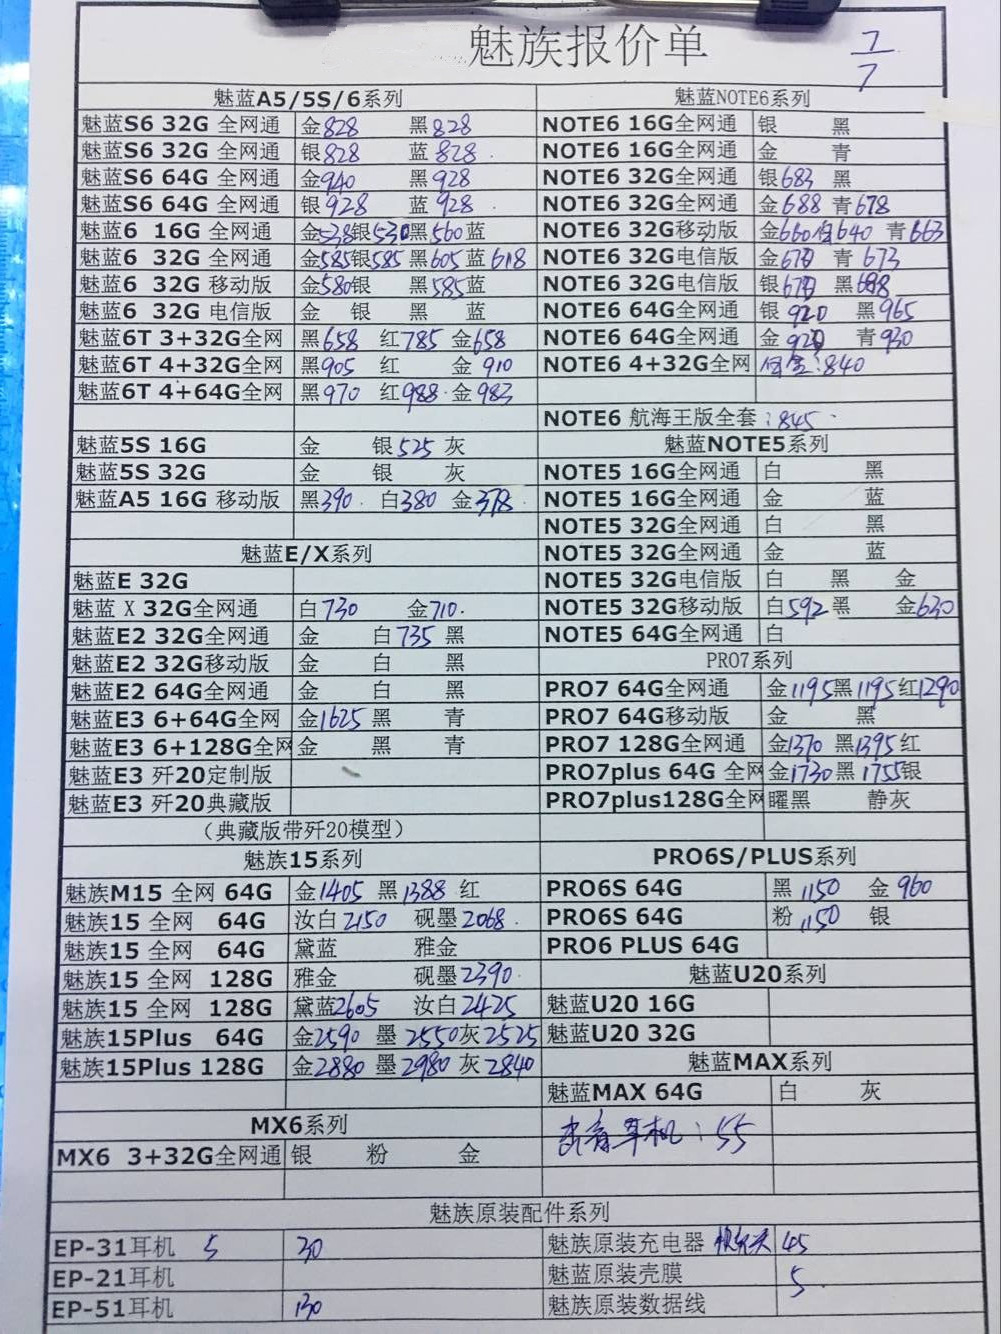 魅族报价单
7/7
魅蓝A5/5S/6系列
魅蓝S6 32G 全网通 金828 黑828
魅蓝S6 32G 全网通 银828 蓝828
魅蓝S6 64G 全网通 金940 黑928
魅蓝S6 64G 全网通 银928 蓝928
魅蓝6 16G 全网通 金538银530黑560蓝
魅蓝6 32G 全网通 金585银585黑605蓝618
魅蓝6 32G 移动版 金580银 黑585蓝
魅蓝6 32G 电信版 金 银 黑 蓝
魅蓝6T 3+32G全网 黑658 红785 金658
魅蓝6T 4+32G全网 黑905 红 金910
魅蓝6T 4+64G全网 黑970 红988 金983
魅蓝5S 16G 金 银525 灰
魅蓝5S 32G 金 银 灰
魅蓝A5 16G 移动版 黑390 白380 金378
魅蓝E/X系列
魅蓝E 32G
魅蓝 X 32G全网通 白730 金710.
魅蓝E2 32G全网通 金 白735 黑
魅蓝E2 32G移动版 金 白 黑
魅蓝E2 64G全网通 金 白 黑
魅蓝E3 6+64G全网 金1625 黑 青
魅蓝E3 6+128G全网 金 黑 青
魅蓝E3 歼20定制版
魅蓝E3 歼20典藏版
（典藏版带歼20模型）
魅族15系列
魅族M15 全网 64G 金1405 黑1388 红
魅族15 全网 64G 汝白2150 砚墨2068
魅族15 全网 64G 黛蓝 雅金
魅族15 全网 128G 雅金 砚墨2390
魅族15 全网 128G 黛蓝2605 汝白2425
魅族15Plus 64G 金2590 墨2550灰2525
魅族15Plus 128G 金2880 墨2980 灰2840
MX6系列
MX6 3+32G全网通 银 粉 金
魅蓝NOTE6系列
NOTE6 16G全网通 银 黑
NOTE6 16G全网通 金 青
NOTE6 32G全网通 银683 黑
NOTE6 32G全网通 金688 青678
NOTE6 32G移动版 金660 640 青663
NOTE6 32G电信版 金 青673
NOTE6 32G电信版 银 黑
NOTE6 64G全网通 银920 黑965
NOTE6 64G全网通 金920 青930
NOTE6 4+32G全网 银金:840
NOTE6 航海王版全套:845
魅蓝NOTE5系列
NOTE5 16G全网通 白 黑
NOTE5 16G全网通 金 蓝
NOTE5 32G全网通 白 黑
NOTE5 32G全网通 金 蓝
NOTE5 32G电信版 白 黑 金
NOTE5 32G移动版 白592黑 金630
NOTE5 64G全网通 白
PRO7系列
PRO7 64G全网通 金1195黑1195红1290
PRO7 64G移动版 金 黑
PRO7 128G全网通 金1370 黑1395红
PRO7plus 64G 全网 金1730黑1755银
PRO7plus128G全网 曜黑 静灰
PRO6S/PLUS系列
PRO6S 64G 黑1150 金960
PRO6S 64G 粉1150 银
PRO6 PLUS 64G
魅蓝U20系列
魅蓝U20 16G
魅蓝U20 32G
魅蓝MAX系列
魅蓝MAX 64G 白 灰
耳机:55
魅族原装配件系列
EP-31耳机 5 30
EP-21耳机
EP-51耳机 130
魅族原装充电器 快充头 45
魅蓝原装壳膜 5
魅族原装数据线